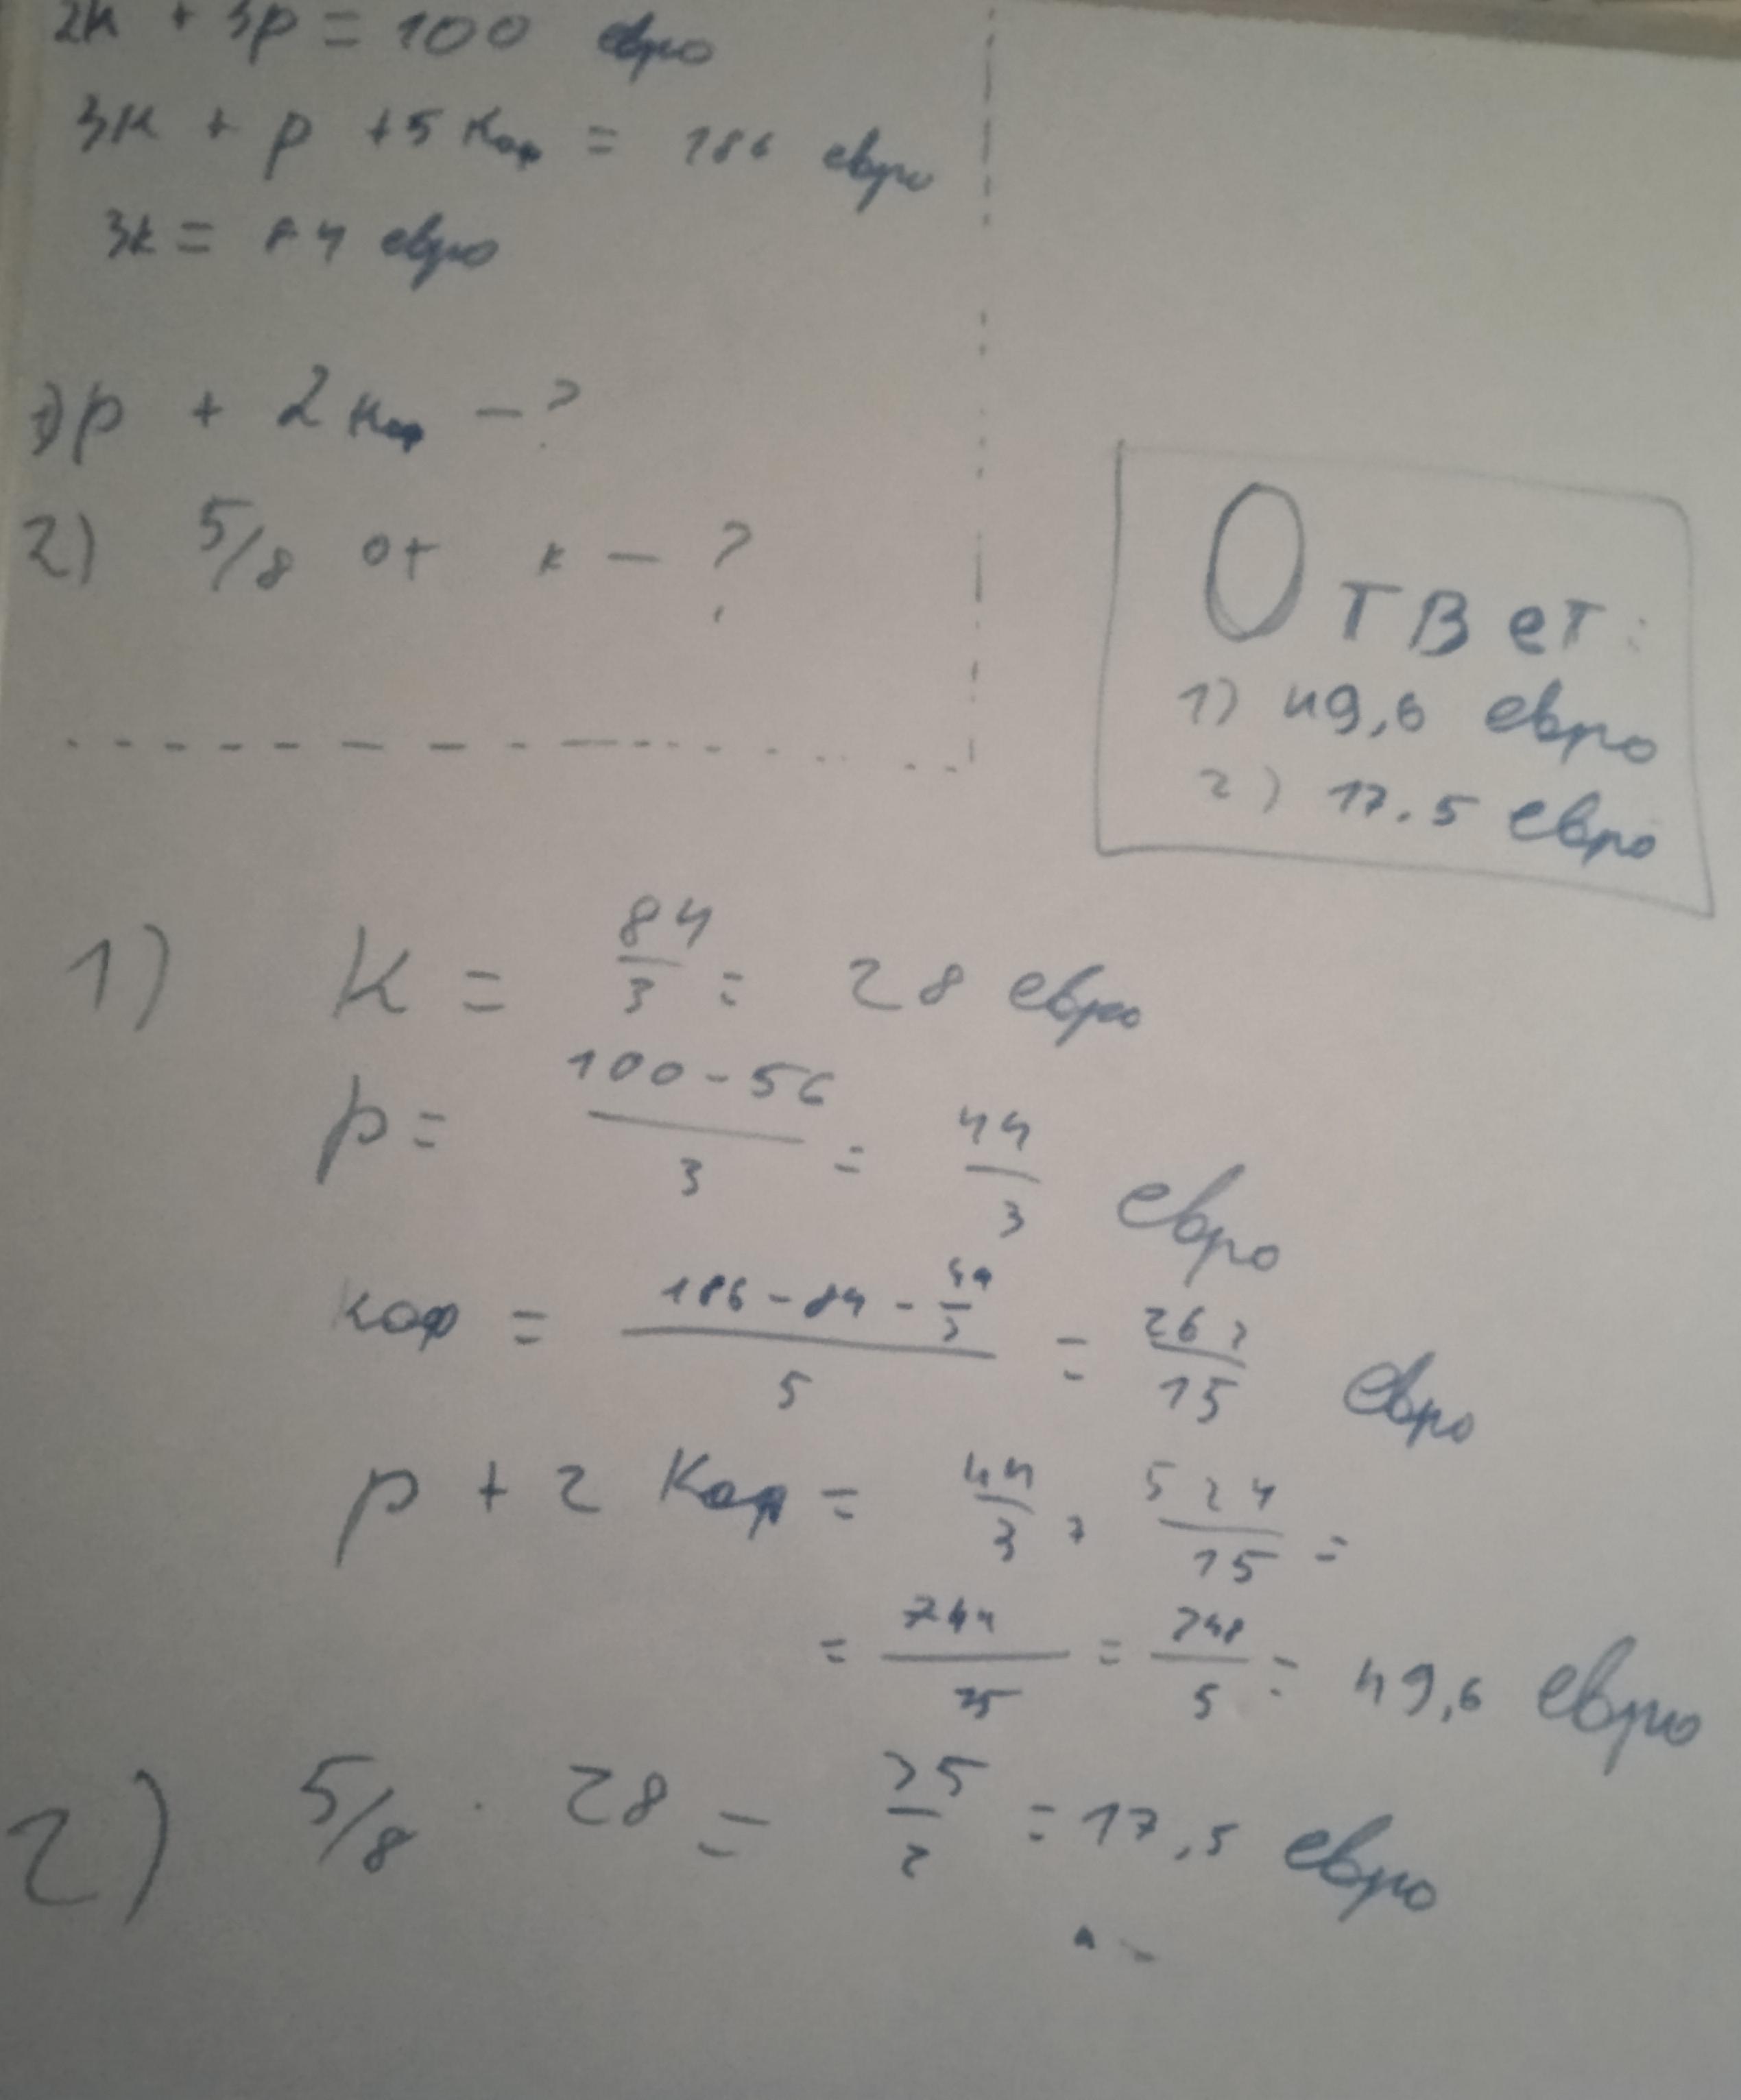 2к + 3р = 100 евро
3к + р + 5 кор = 186 евро
3к = 84 евро
1) р + 2 кор - ?
2) 5/8 от к - ?
Ответ:
1) 49,6 евро
2) 17.5 евро
1) К = 84/3 = 28 евро
р = (100 - 56)/3 = 44/3 евро
кор = (186 - 84 - 44/3)/5 = 262/15 евро
р + 2 Кор = 44/3 + 524/15 =
= 744/15 = 248/5 = 49,6 евро
2) 5/8 · 28 = 35/2 = 17,5 евро